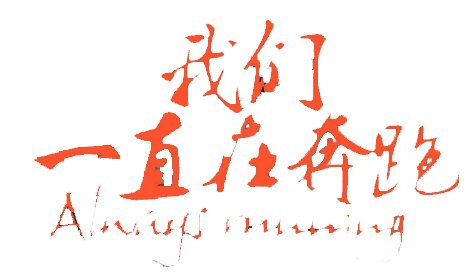 我们
一直在奔跑
Always running